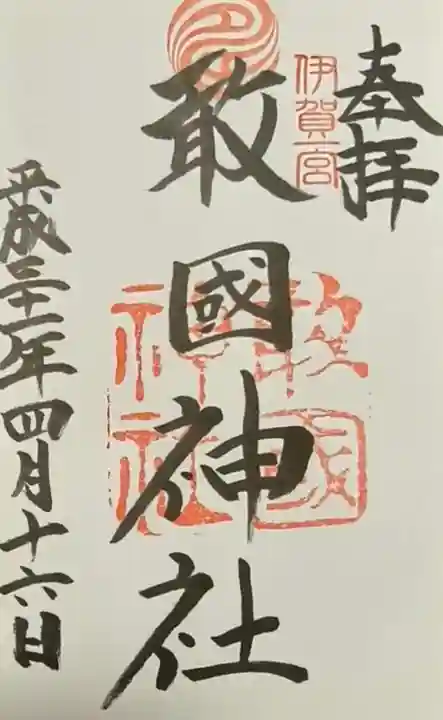 奉拝
伊賀一宮
敢國神社
敢國神社
平成三十一年四月十六日